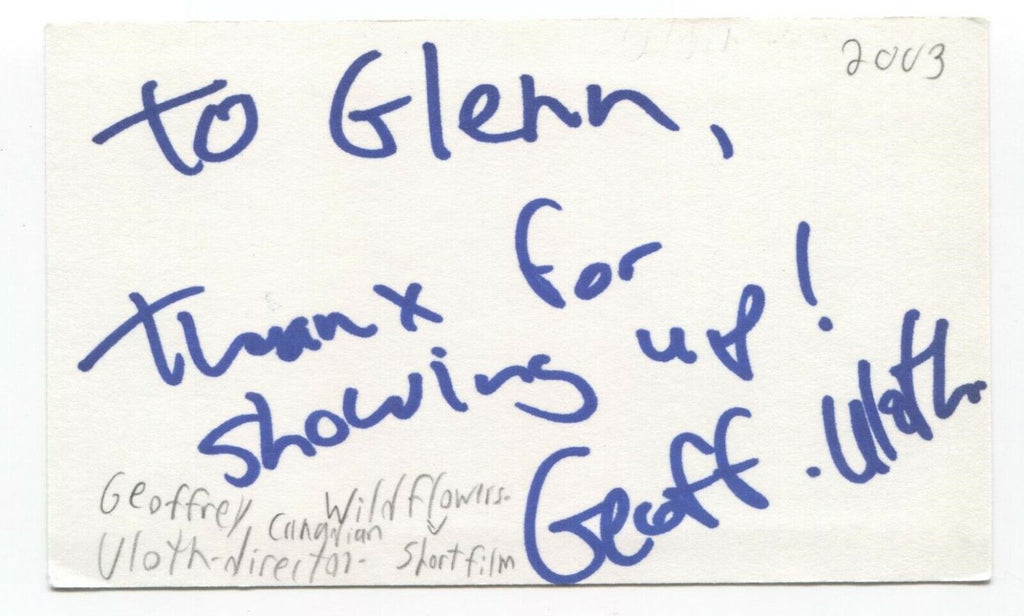 2003
To Glenn,
Thanx for
showing up!
Geoff Uloth
Geoffrey Wildflowers-
Canadian
Uloth-director- short film